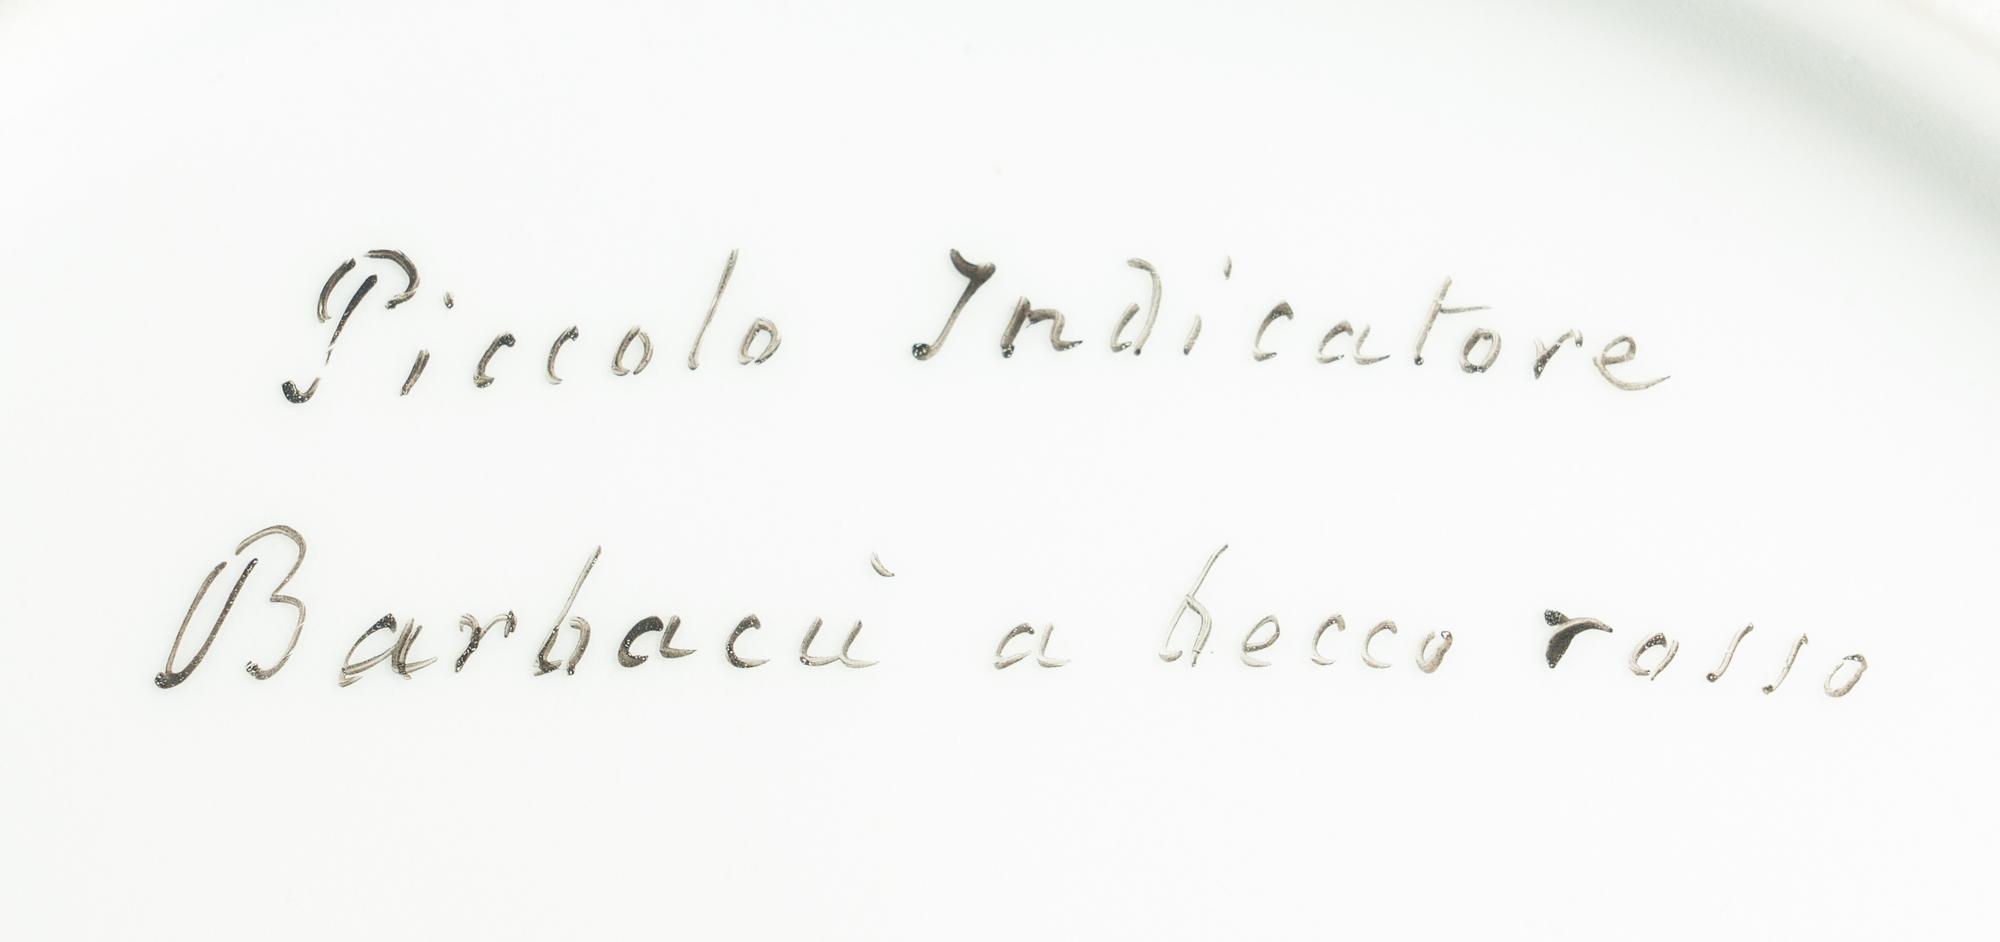 Piccolo Indicatore
Barbacù a becco rosso